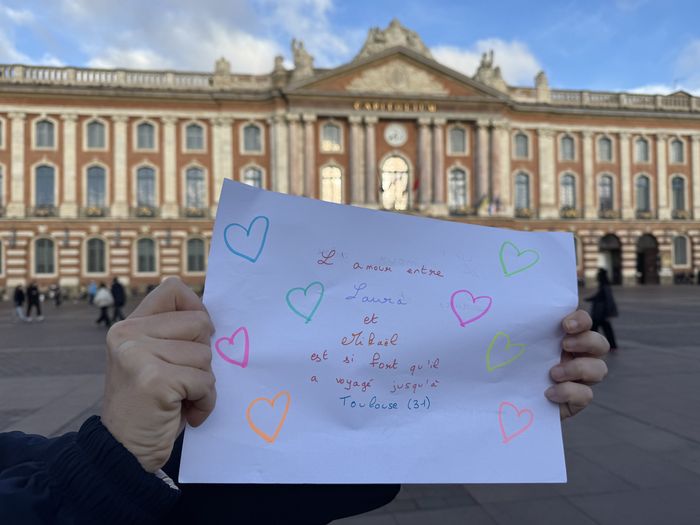 CAPITOLIUM
L'amour entre
Laura
et
Mikaël
est si fort qu'il
a voyagé jusqu'à
Toulouse (31)